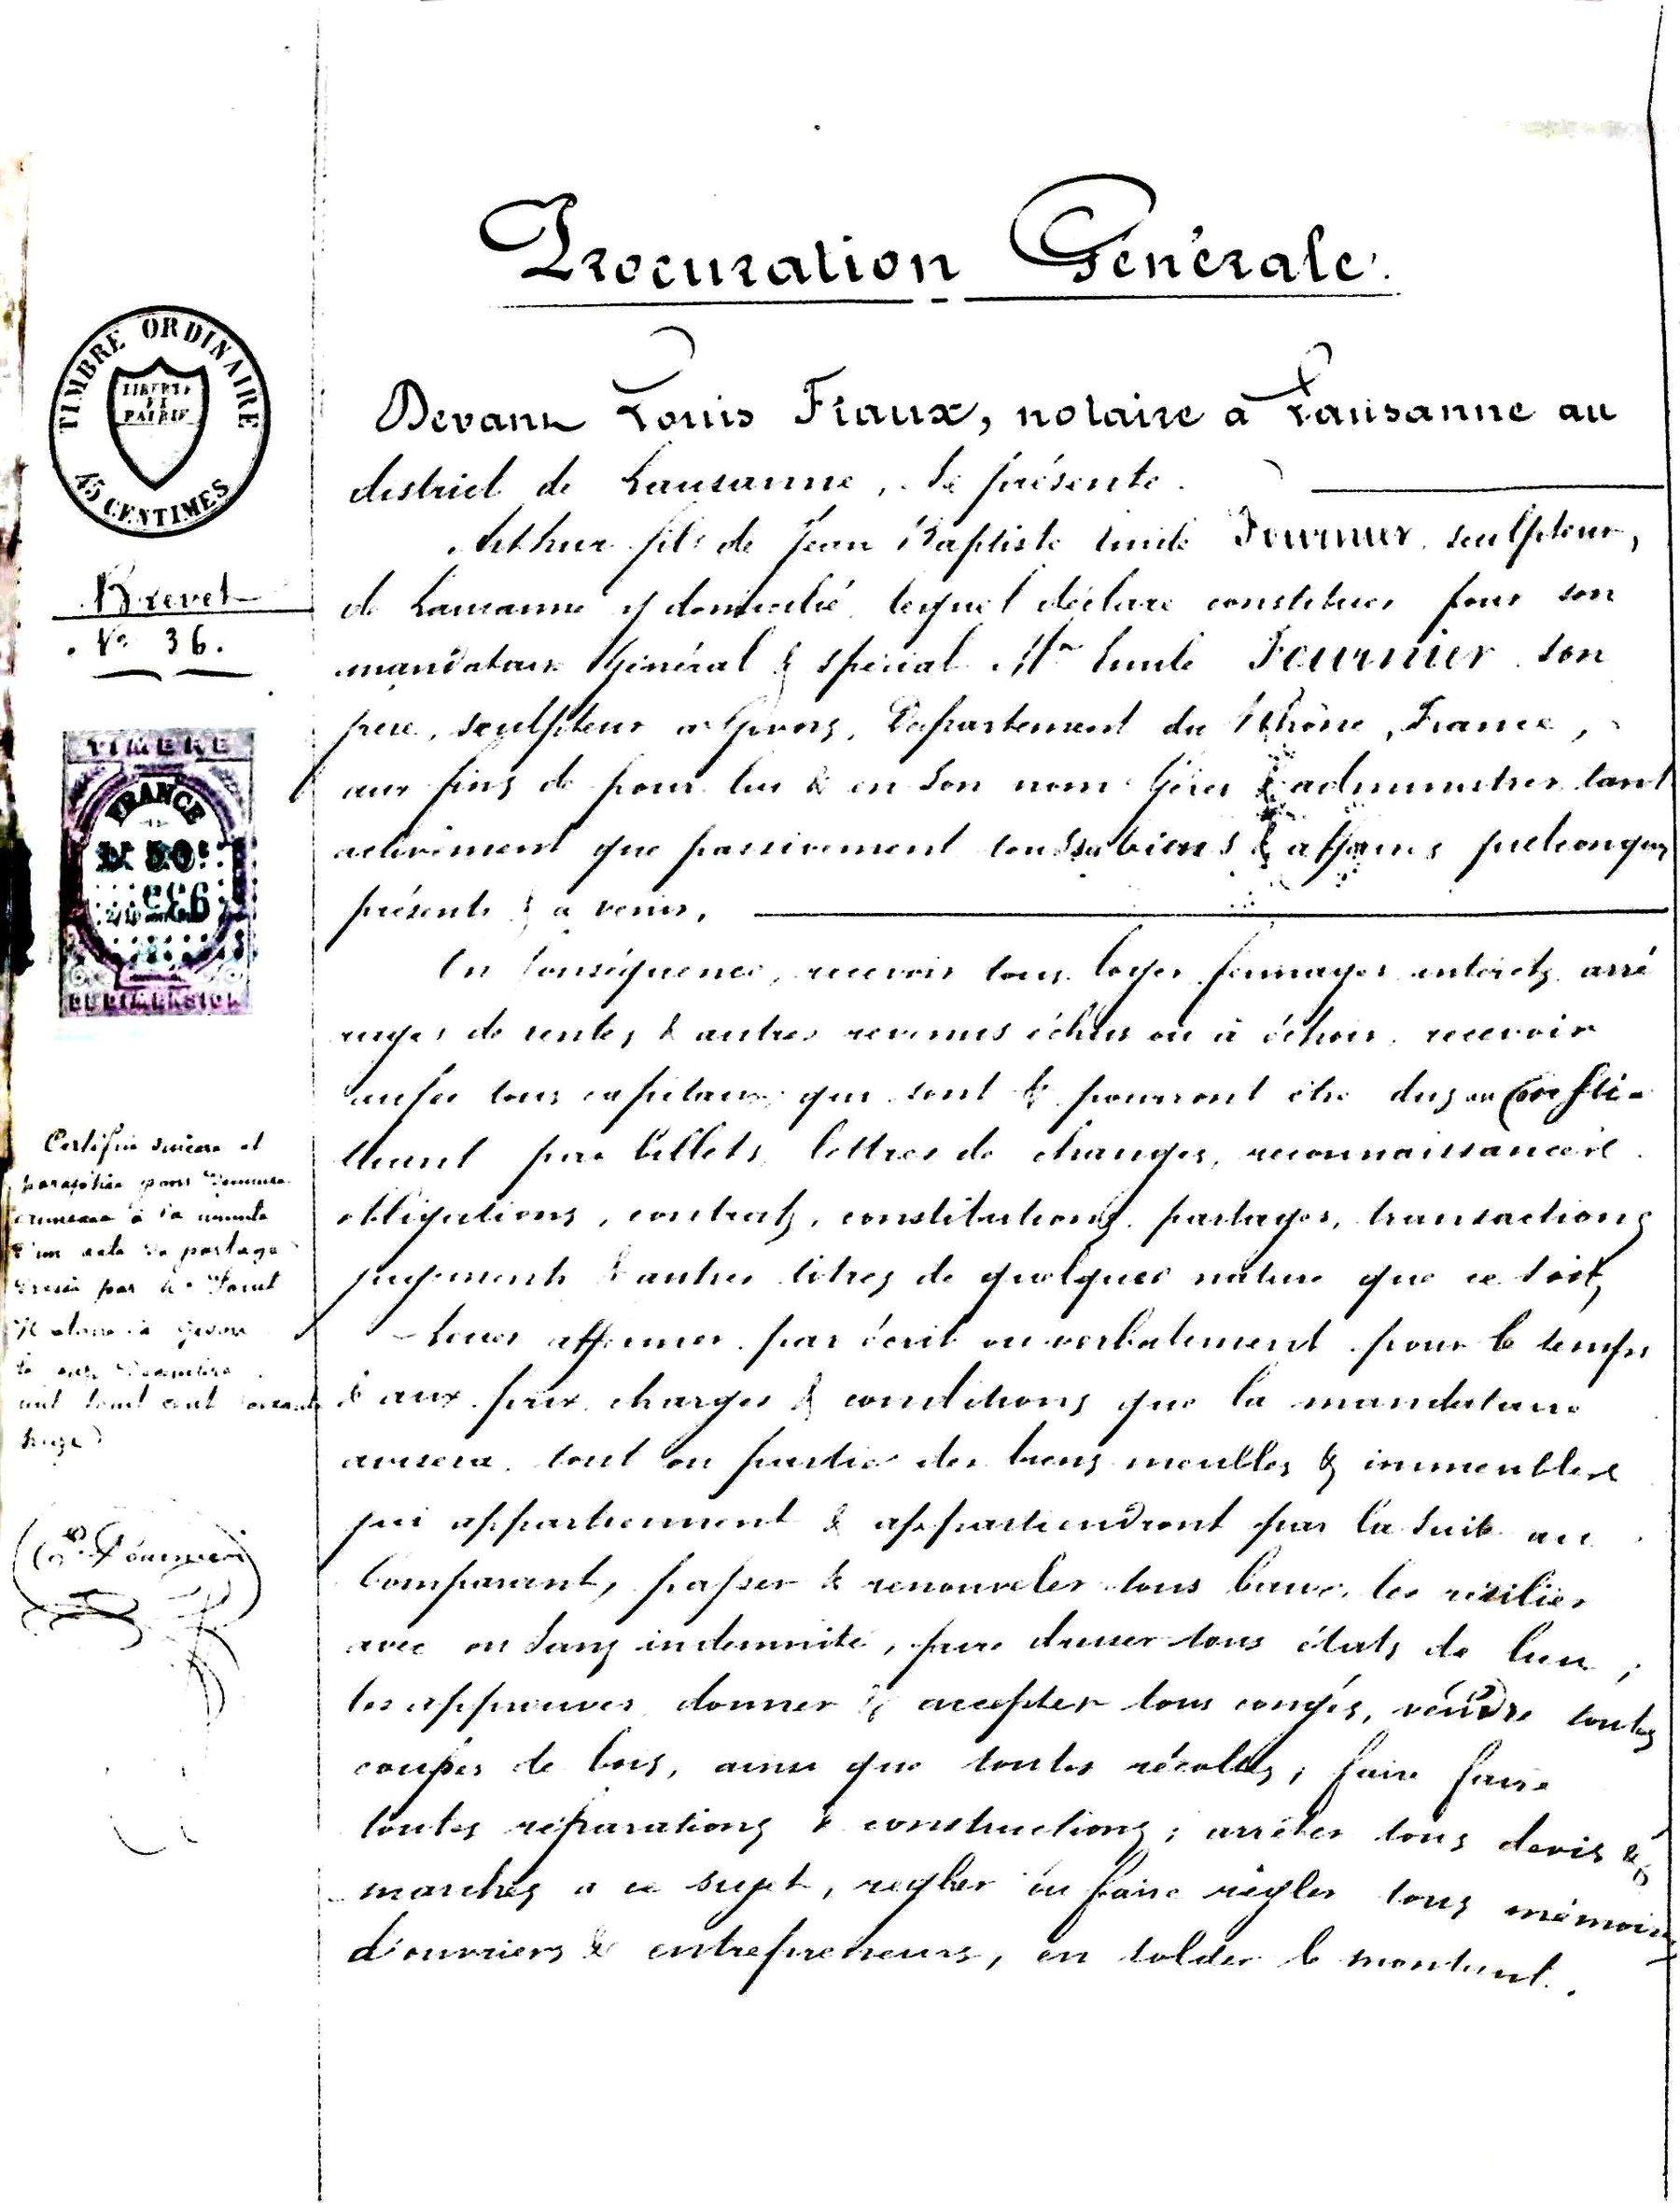 Procuration Générale.
Devant Louis Fiaux, notaire à Lausanne au
district de Lausanne, se présente.
Arthur fils de Jean Baptiste Emile Fournier, sculpteur,
de Lausanne y domicilié, lequel déclare constituer pour son
mandataire Général & spécial Mr Emile Fournier son
père, sculpteur à Givors, Département du Rhône, France,
aux fins de pour lui & en son nom Gérer & administrer tant
activement que passivement tous ses biens & affaires quelconques
présents & à venir.
En conséquence, recevoir tous loyers fermages intérêts arré
rages de rentes & autres revenus échus ou à échoir, recevoir
aussi tous capitaux qui sont & pourront être dus au
par billets, lettres de changes, reconnaissances
obligations, contrats, constitutions, partages, transactions
jugements & autres titres de quelques nature que ce soit,
Louer affermer par écrit ou verbalement pour le temps
& aux prix charges & conditions que le mandataire
avisera, tout ou partie des biens meubles & immeubles
qui appartiennent & appartiendront par la suite au
Comparant, passer & renouveler tous baux, les résilier
avec ou sans indemnité, faire dresser tous états de lieu;
les approuver donner & accepter tous congés, vendre toutes
coupes de bois, ainsi que toutes récoltes; faire faire
toutes réparations & constructions; arrêter tous devis &
marchés à ce sujet, regler ou faire régler tous mémoires
d'ouvriers & entrepreneurs, en solder le montant.
TIMBRE ORDINAIRE
LIBERTE
ET
PATRIE
45 CENTIMES
Brevet
No 36.
TIMBRE
FRANCE
50c
DE DIMENSION
Certifié sincère et
paraphée pour demeurer
annexée à la minute
d'un acte de partage
dressé par Me
Notaire à Givors
le
mil huit cent soixante
seize
Fournier